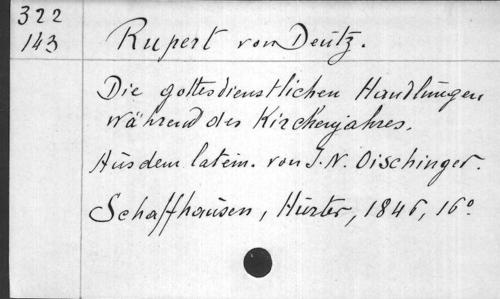 322
143
Rupert von Deutz.
Die gottesdienstlichen Handlungen
während des Kirchenjahres.
Aus dem latein. von J. N. Oischinger.
Schaffhausen, Hurter, 1846, 16°